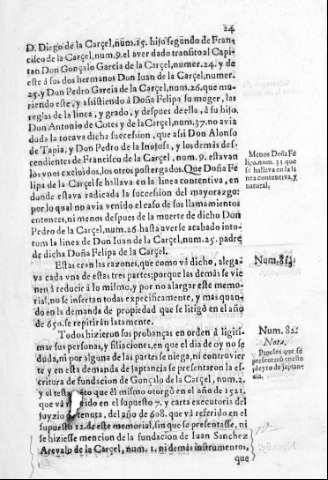 24
D. Diego de la Carçel, num. 25. hijo segundo de Fran-
cisco de la Carçel, num. 9. el aver dado transito al Capi-
tan Don Gonçalo Garcia de la Carçel, numer. 24. y de
este à sus dos hermanos Don Iuan de la Carçel, numer.
25. y Don Pedro Garcia de la Carçel, num. 26. que mu-
riendo este, y assistiendo à Doña Felipa su moger, las
reglas de la linea, y grado, y despues de ella, à su hijo,
Don Antonio de Cotes y de la Carçel, num. 37. no avia
duda la tocava dicha succession, que assi Don Alonso
de Tapia, y Don Pedro de la Inojosa, y los demàs des-
cendientes de Francisco de la Carçel, num. 9. estavan
los vnos excluidos, los otros postergados. Que Doña Fe
lipa de la Carçel se hallava en la linea contentiva, en
donde estava radicada la succession del mayorazgo:
por lo qual no avia venido el caso de sus llamamientos
entonces, ni menos despues de la muerte de dicho Don
Pedro de la Carçel, num. 26. hasta verse acabado in to-
tum la linea de Don Iuan de la Carçel, num. 25. padre
de dicha Doña Felipa de la Carçel.
Menos Doña Fe
lipa, num. 31 que
se hallava en la li
nea contentiva, y
natural,
Estas eran las razones, que como và dicho, alega-
va cada vna de estas tres partes; porque las demàs se vie
nen à reducir à lo mismo, y por no alargar este memo-
rial, no se insertan todas expecificamente, y mas quan-
do en la demanda de propiedad que se litigò en el año
de 650. se repitiràn latamente.
Todos hizieron sus probanças en orden à ligiti-
mar sus personas, y filiaciones, en que el dia de oy no se
duda, ni por alguna de las partes se niega, ni controvier
te y en esta demanda de jactancia se presentaron la es-
critura de fundacion de Gonçalo de la Carçel, num. 2.
y el testamento que el mismo otorgò en el año de 1521.
que và referido en el supuesto 7. y carta executoria del
Iuyzio de tenuta, del año de 608. que và referido en el
supuesto 12. de este memorial, sin que se presentasse, ni
se hiziesse mencion de la fundacion de Iuan Sanchez
Arevalo de la Carçel, num. 1. ni demàs instrumentos,
que
Num. 82.
Nota.
Papeles que se
presentarõ en este
pleyto de jactan-
cia.